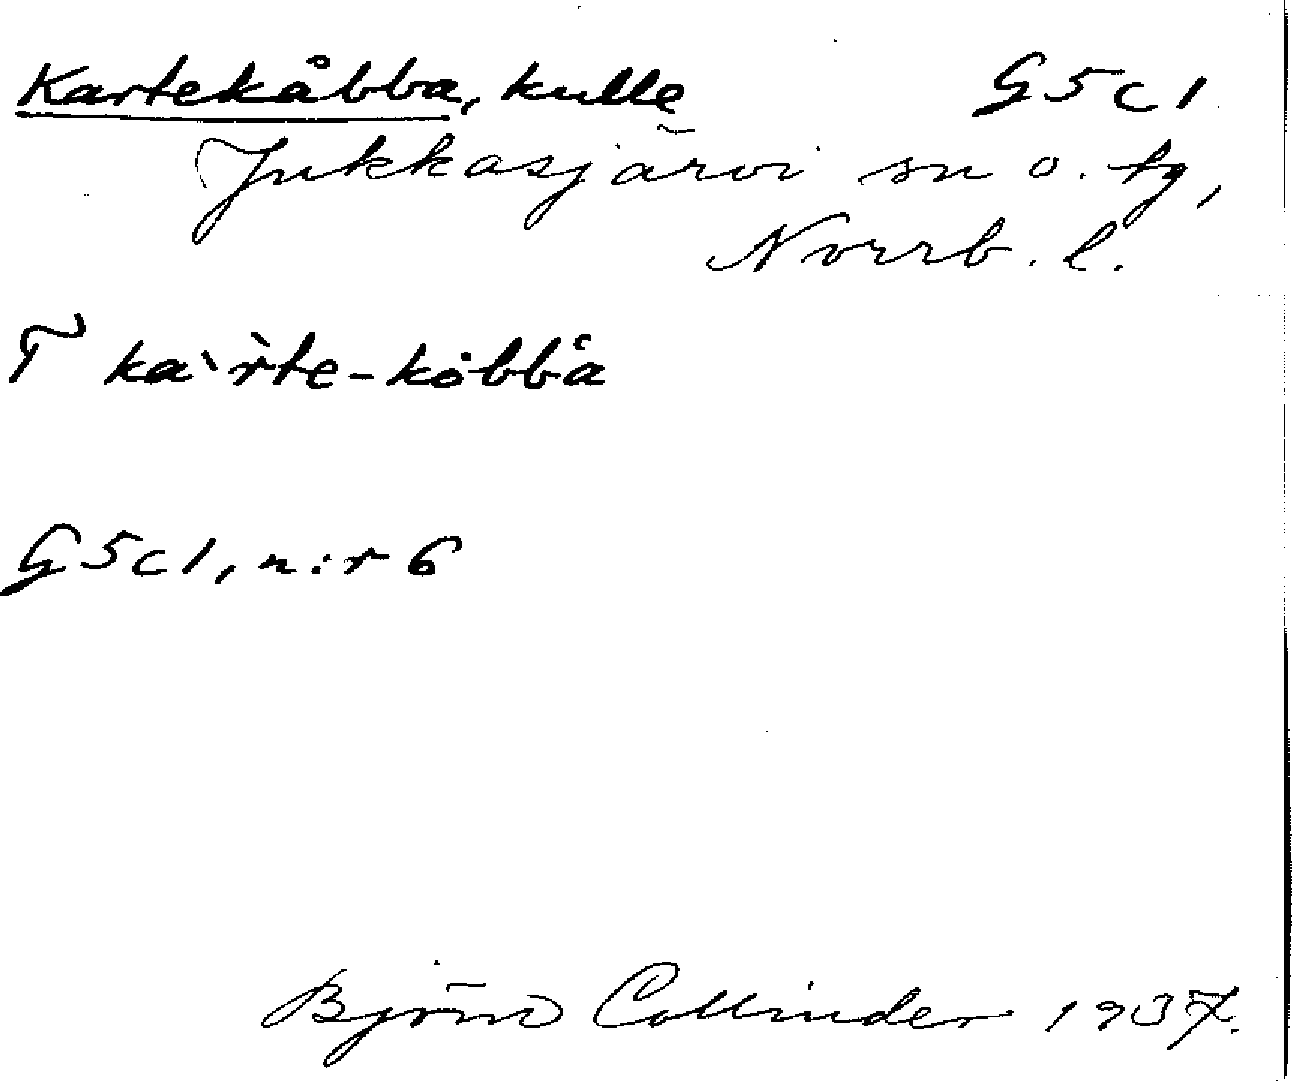 Kartekåbba, kulle G5c1
Jukkasjärvi sn o. tg,
Norrb. l.
T ka`r̀te-kȯbbå
G5c1, n:r 6
Björn Collinder 1937.